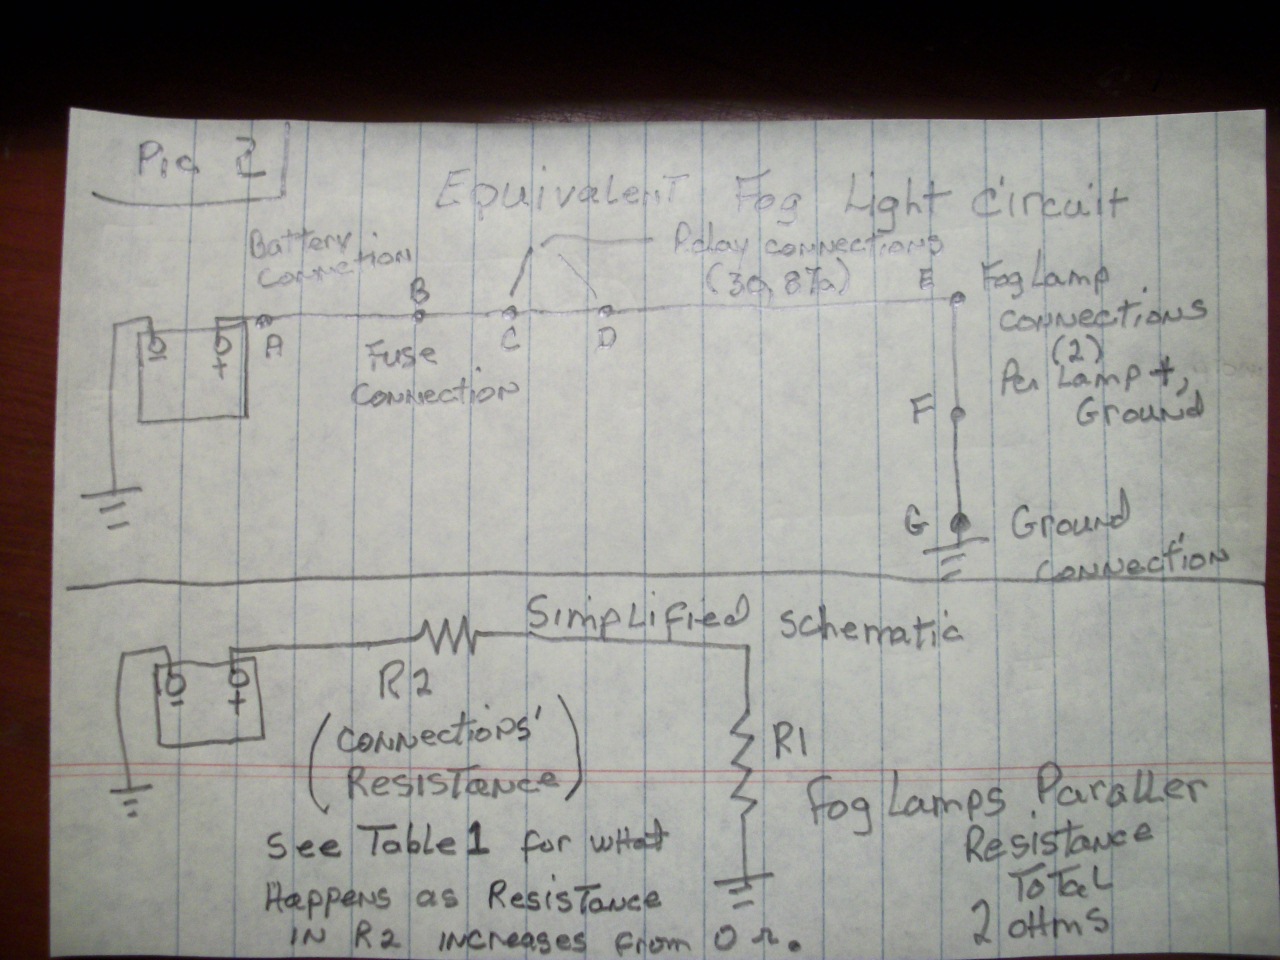 Pic 2
Equivalent Fog Light Circuit
Battery
Connection
Relay connections
(30, 87a)
A
B
C
D
E
F
G
Fuse
Connection
Fog Lamp
Connections
(2)
Per Lamp +,
Ground
Ground
Connection
-
+
Simplified Schematic
-
+
R2
(Connections'
Resistance)
R1
Fog Lamps Paraller
Resistance
Total
2 oHms
See Table 1 for what
Happens as Resistance
in R2 increases from 0 Ω.